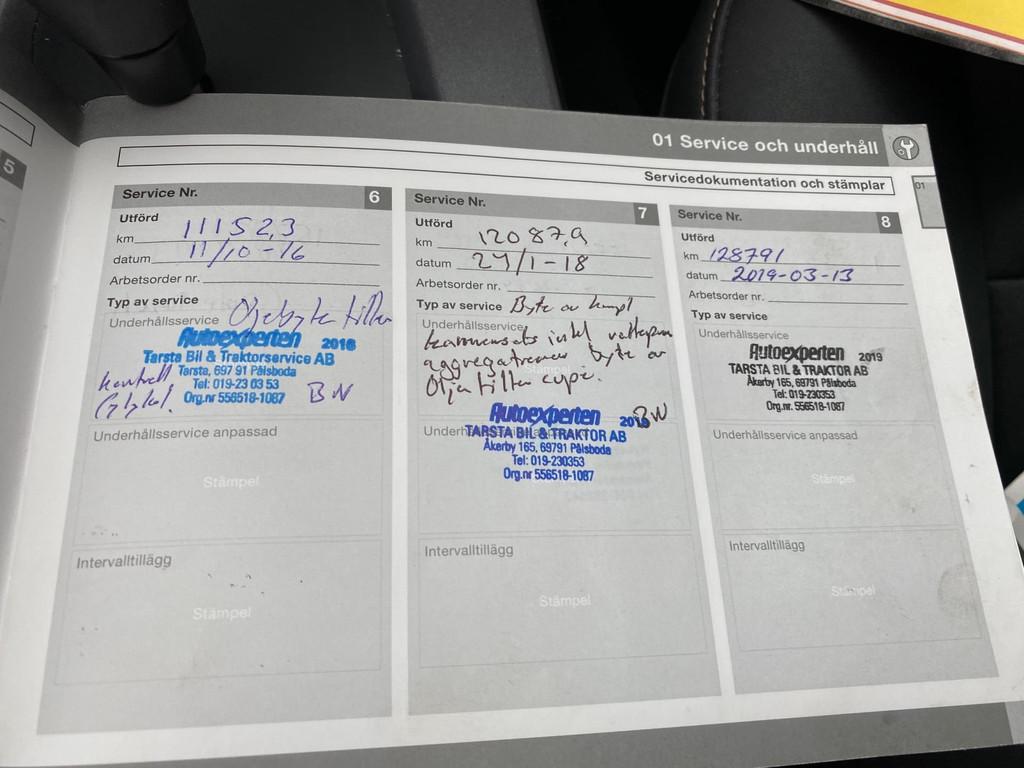 01 Service och underhåll
Servicedokumentation och stämplar
01
5
Service Nr. 6
Utförd
km 111523
datum 11/10-16
Arbetsorder nr.
Typ av service
Underhållsservice Oljebyte filter
Autoexperten 2016
Tarsta Bil & Traktorservice AB
Tarsta, 697 91 Pålsboda
Tel: 019-23 03 53
Org.nr 556518-1087
kontroll
Glykol. BN
Underhållsservice anpassad
Stämpel
Intervalltillägg
Stämpel
Service Nr. 7
Utförd
km 120879
datum 24/1-18
Arbetsorder nr.
Typ av service Byte av kompl
Underhållsservice
kamremsats inkl vattenpum
aggregatremmar byte av
Olja filter cupe.
Stämpel
BN
Autoexperten
TARSTA BIL & TRAKTOR AB
Åkerby 165, 69791 Pålsboda
Tel: 019-230353
Org.nr 556518-1087
Intervalltillägg
Stämpel
Service Nr. 8
Utförd
km 128791
datum 2019-03-13
Arbetsorder nr.
Typ av service
Underhållsservice
Autoexperten 2019
TARSTA BIL & TRAKTOR AB
Åkerby 165, 69791 Pålsboda
Tel: 019-230353
Org.nr 556518-1087
Underhållsservice anpassad
Stämpel
Intervalltillägg
Stämpel